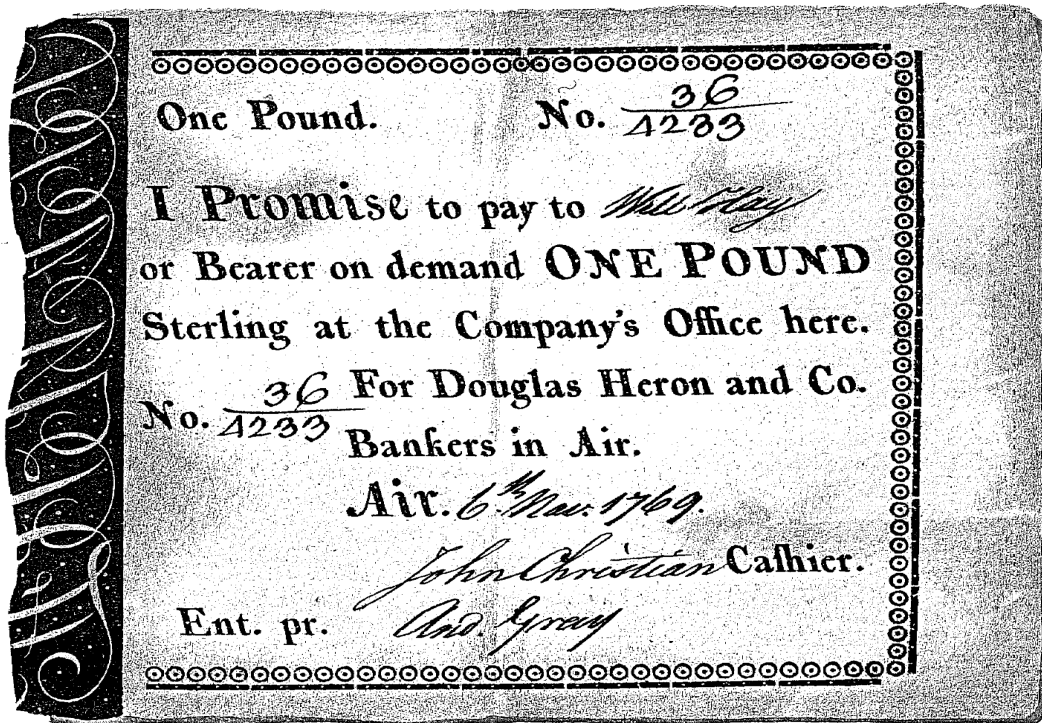 One Pound. No. 36/4233
I Promise to pay to Will Hay
or Bearer on demand ONE POUND
Sterling at the Company's Office here.
No. 36/4233 For Douglas Heron and Co.
Bankers in Air.
Air. 6th Nov. 1769.
John Christian Caſhier.
Ent. pr. And. Gray